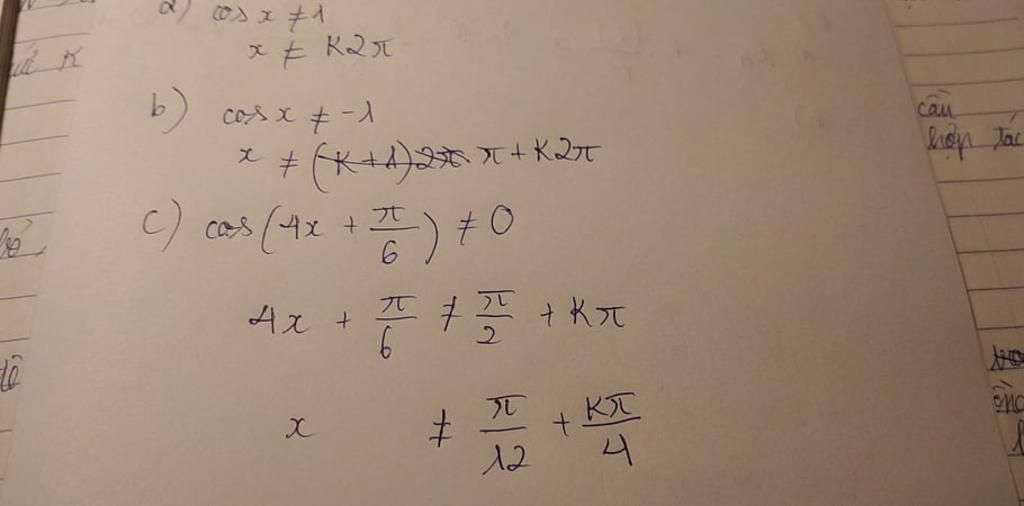 a) cos x ≠ 1
x ≠ K2π
b) cos x ≠ -1
x ≠ (K+1)2π. π + K2π
c) cos(4x + π/6) ≠ 0
4x + π/6 ≠ π/2 + Kπ
x ≠ π/12 + Kπ/4
cần
hợp tác